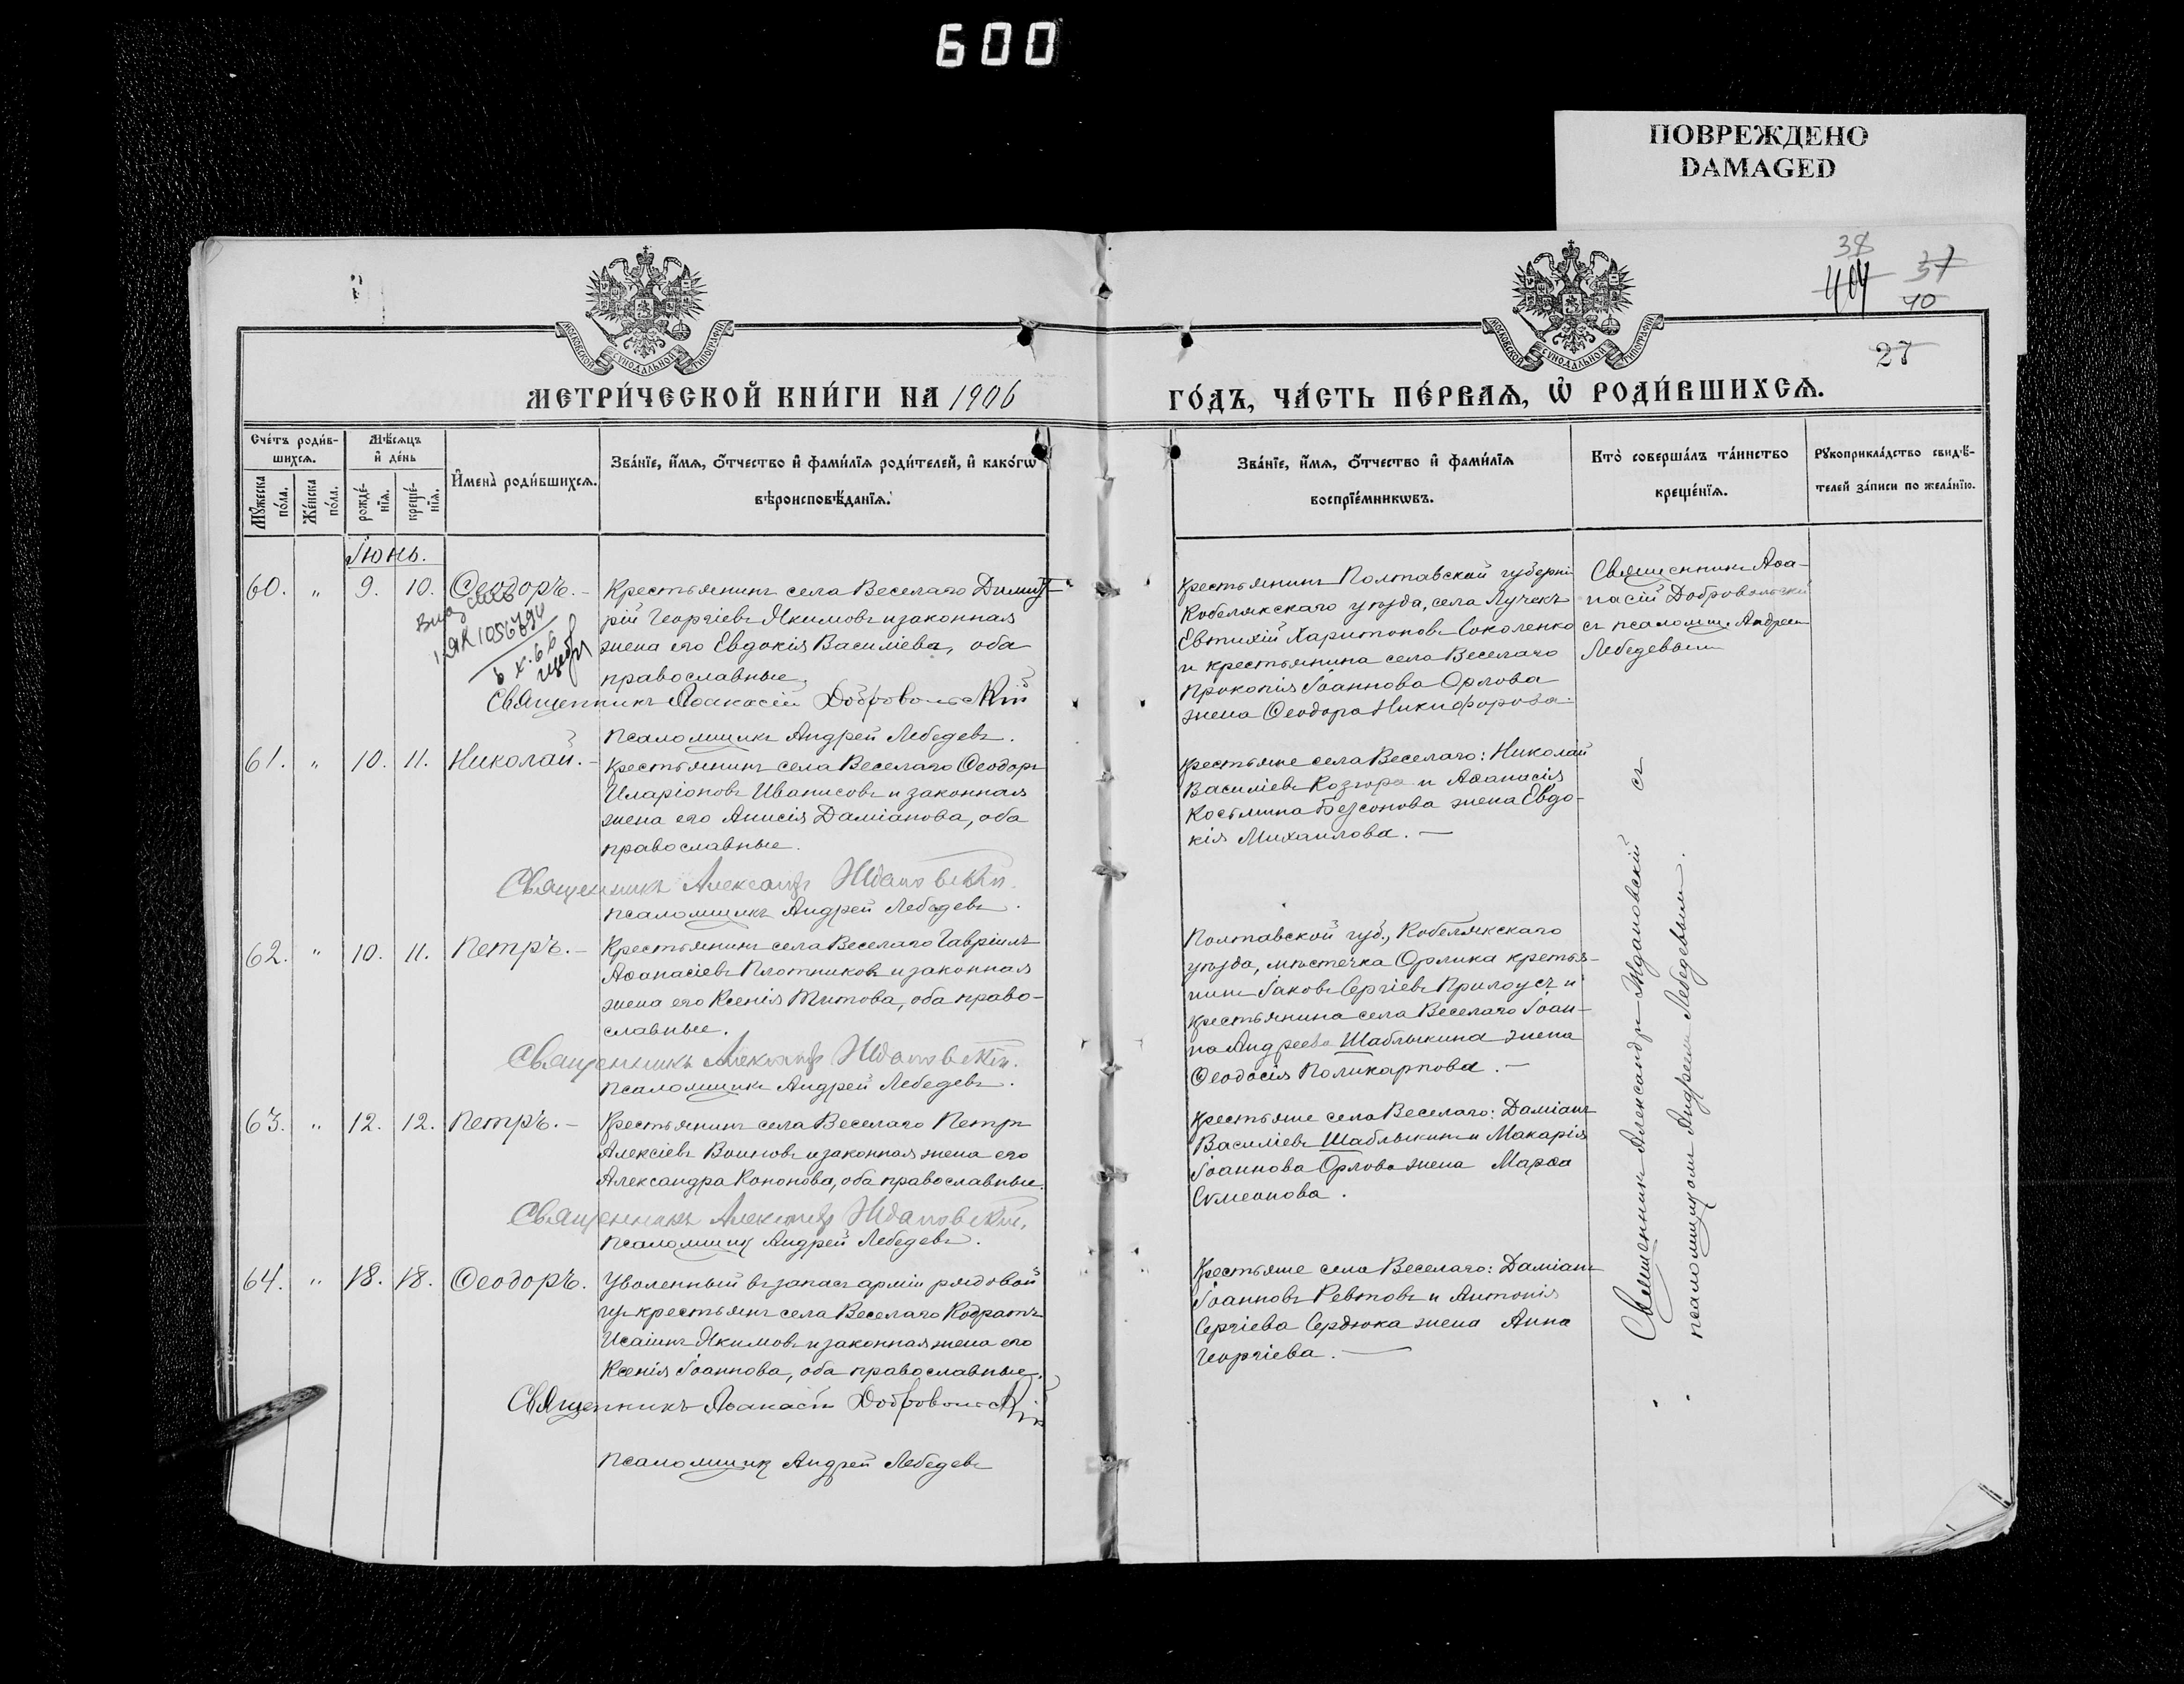 600
ПОВРЕЖДЕНО
DAMAGED
38
404
37
40
27
МОСКОВСКОЙ СѴНОДАЛЬНОЙ ТИПОГРАФІИ
МОСКОВСКОЙ СѴНОДАЛЬНОЙ ТИПОГРАФІИ
МЕТРИ́ЧЕСКОЙ КНИ́ГИ НА 1906
ГО́ДЪ, ЧА́СТЬ ПЕ́РВАѦ, Ѡ҆ РОДИ́ВШИХСѦ.
Счéтъ роди́в-
шихсѧ.
Мѣ́сѧцъ
и҆ де́нь
Мꙋ́жеска
по́ла.
Же́нска
по́ла.
рожде́-
нїѧ.
креще́-
нїѧ.
И҆мена̀ роди́вшихсѧ.
Зва́нїе, и҆́мѧ, ѻ҆́тчество и҆ фами́лїѧ роди́телей, и҆ како́гѡ
вѣроисповѣ́данїѧ.
Зва́нїе, и҆́мѧ, ѻ҆́тчество и҆ фами́лїѧ
воспрїе́мникѡвъ.
Кто̀ соверша́лъ та́инство
креще́нїѧ.
Рꙋкоприкла́дство свидѣ́-
телей за́писи по жела́нїю.
Іюнь.
60. " 9. 10. Ѳеодоръ. -
Крестьянинъ села Веселаго Димит-
рій Георгіевъ Якимовъ и законная
жена его Евдокія Василіева, оба
православные.
Священникъ Аѳанасій Добровольскій
Псаломщикъ Андрей Лебедевъ.
1056794
Крестьянинъ Полтавской губерніи
Кобелякскаго уѣзда, села Лучекъ
Евтихій Харитоновъ Соколенко
и крестьянина села Веселаго
Прокопія Іоаннова Орлова
жена Ѳеодора Никифорова.
Священникъ Аѳа-
насій Добровольскій
съ псаломщ. Андреем
Лебедевым
61. " 10. 11. Николай. -
Крестьянинъ села Веселаго Ѳеодоръ
Иларіоновъ Иванисовъ и законная
жена его Анисія Даміанова, оба
православные.
Священникъ Александръ Ждановскій.
Псаломщикъ Андрей Лебедевъ.
Крестьяне села Веселаго: Николай
Василіевъ Козюра и Аѳанасія
Косьмина Безсонова жена Евдо-
кія Михаилова. —
62. " 10. 11. Петръ. -
Крестьянинъ села Веселаго Гавріилъ
Аѳанасіевъ Плотниковъ и законная
жена его Ксенія Титова, оба право-
славные.
Священникъ Александръ Ждановскій.
Псаломщикъ Андрей Лебедевъ.
Полтавской губ., Кобелякскаго
уѣзда, мѣстечка Орлика кретья-
нинъ Іаковъ Сергіевъ Прилоусъ и
крестьянина села Веселаго Іоан-
на Андреева Шаблыкина жена
Ѳеодосія Поликарпова. -
63. " 12. 12. Петръ. -
Крестьянинъ села Веселаго Петръ
Алексіевъ Воиновъ и законная жена его
Александра Кононова, оба православные.
Священникъ Александръ Ждановскій.
Псаломщикъ Андрей Лебедевъ.
Крестьяне села Веселаго: Даміанъ
Василіевъ Шаблыкинъ и Макарія
Іоаннова Орлова жена Марѳа
Сѵмеонова.
64. " 18. 18. Ѳеодоръ.
Уволенный въ запасъ арміи рядовой
изъ крестьянъ села Веселаго Кодратъ
Исаіинъ Якимовъ и законная жена его
Ксенія Іоаннова, оба православные.
Священникъ Аѳанасій Добровольскій
Псаломщикъ Андрей Лебедевъ
Крестьяне села Веселаго: Даміанъ
Іоанновъ Ревтовъ и Антонія
Сергіева Сердюка жена Анна
Георгіева. —
Священникъ Александръ Ждановскій съ
псаломщикомъ Андреемъ Лебедевымъ.